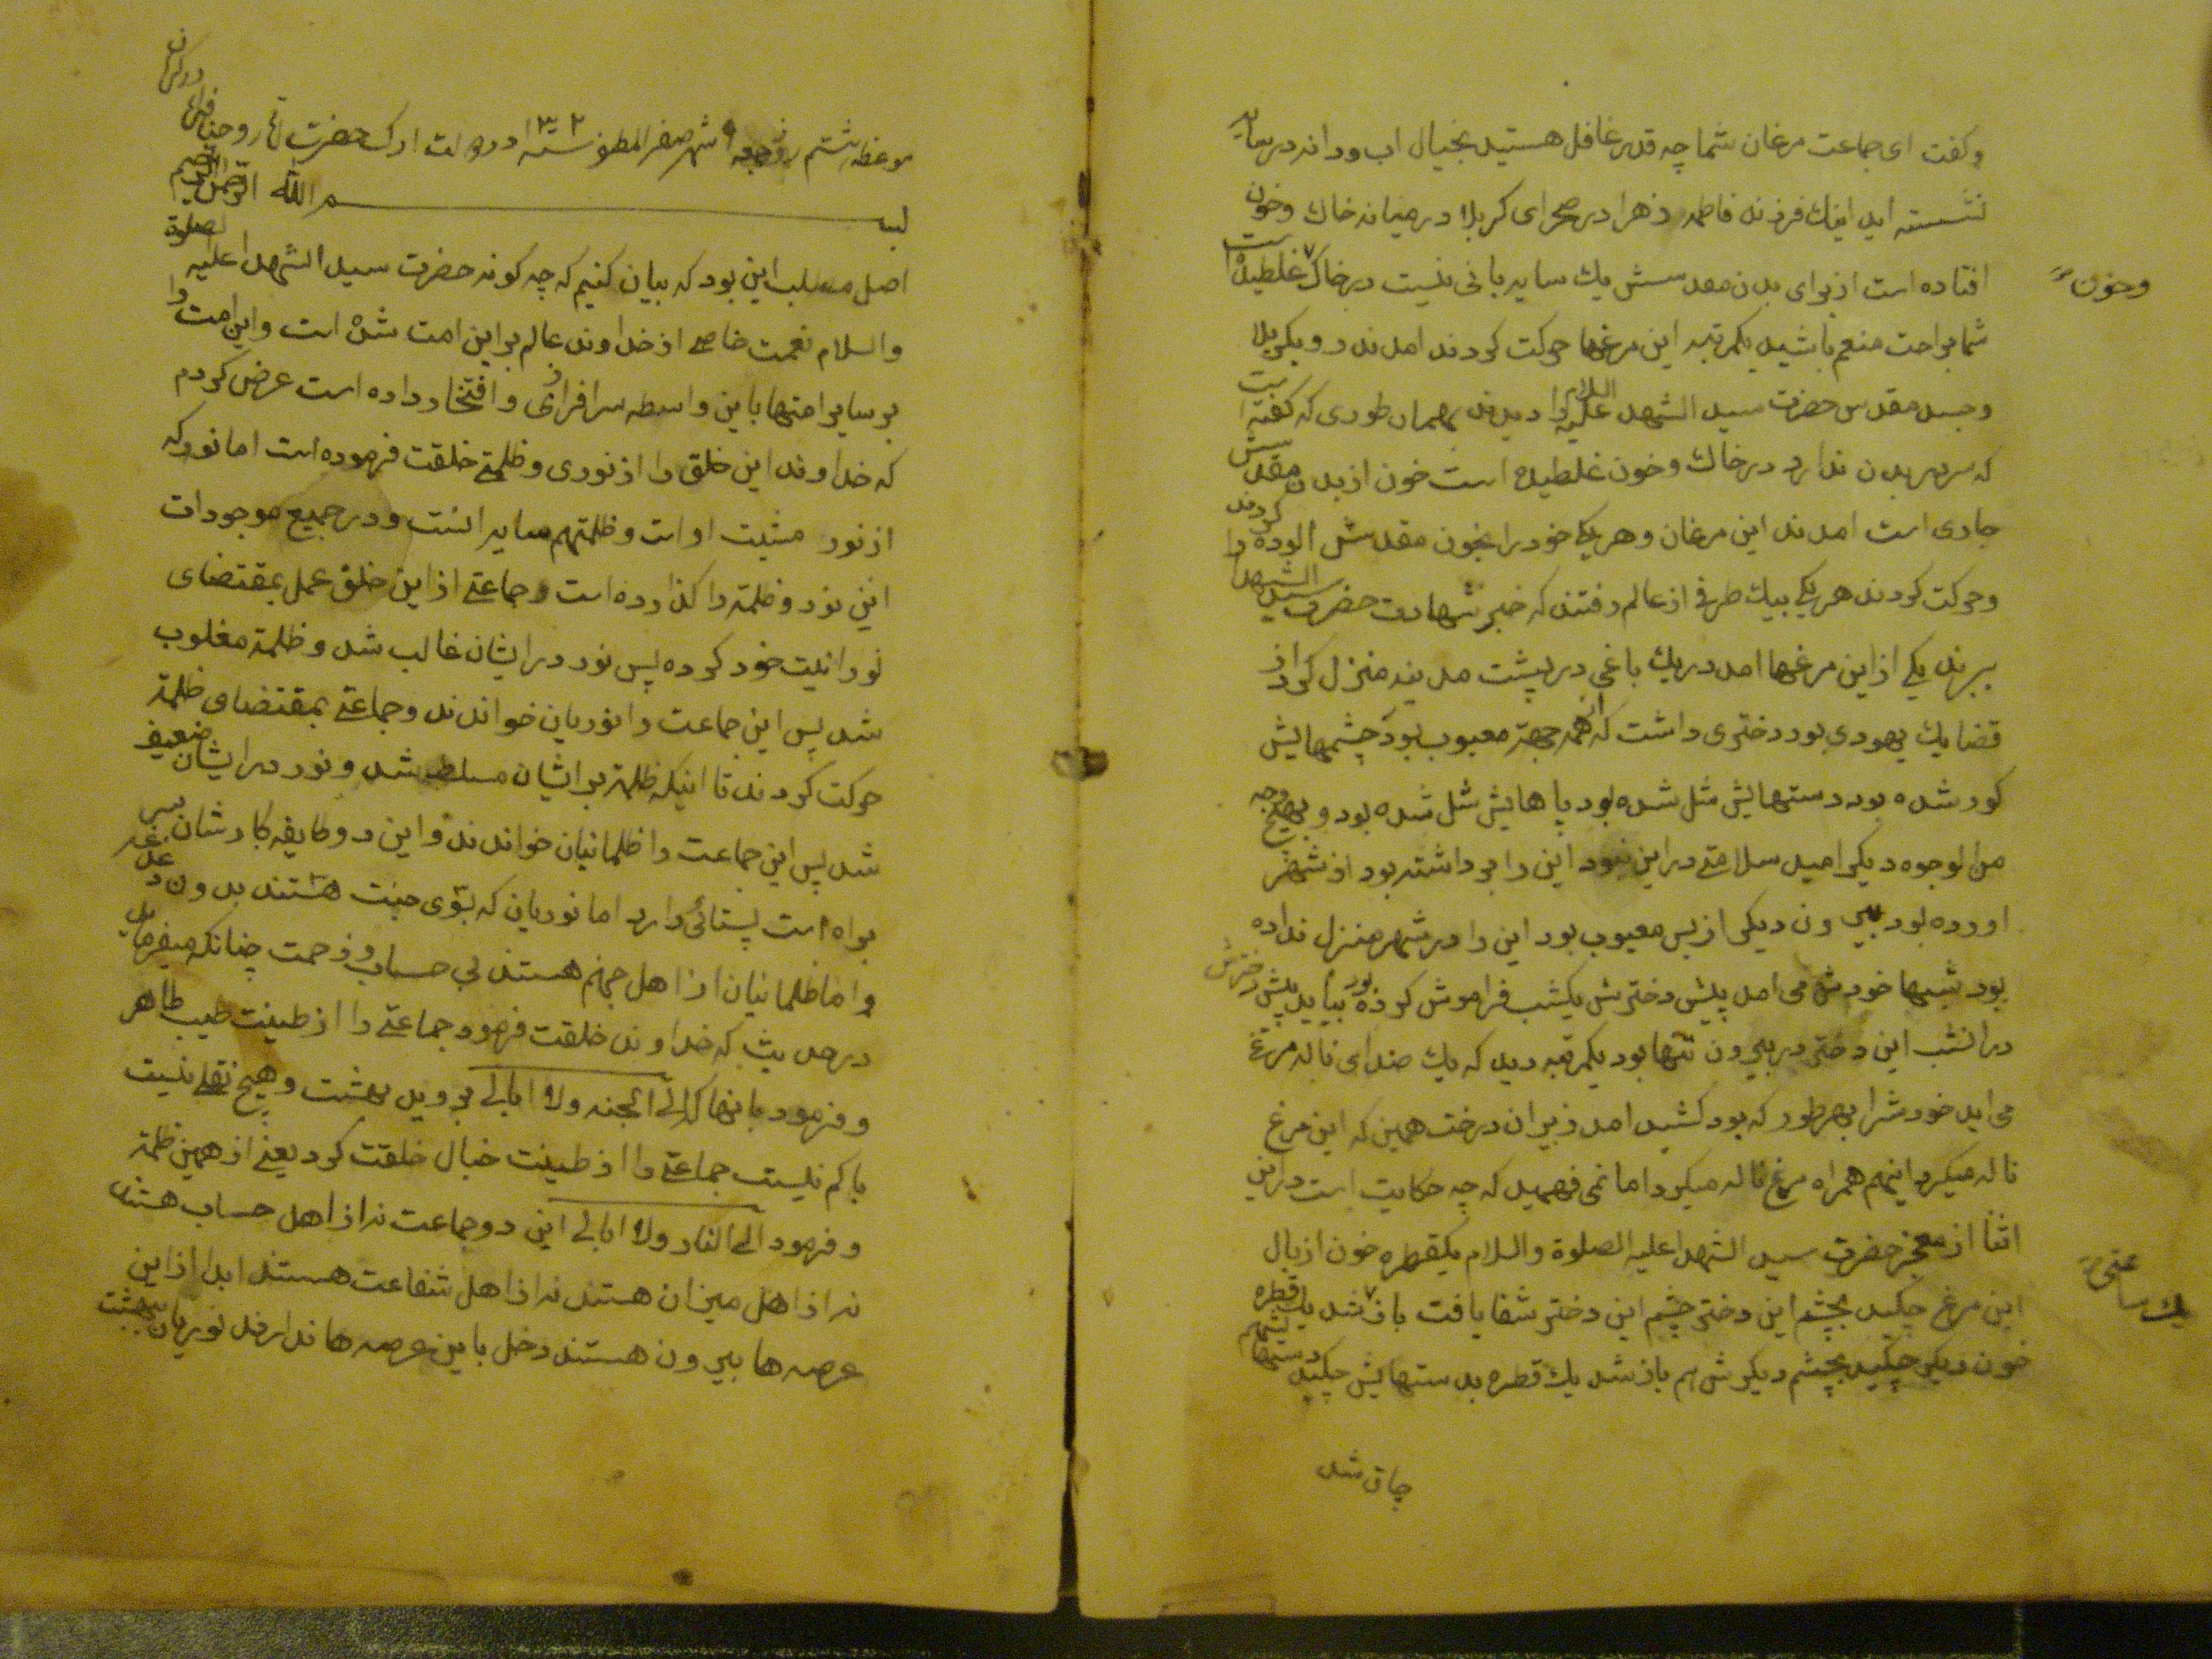 وکفت ای جماعت مرغان شما چه قدر غافل هستید بخیال اب ودانه در سایه
نشسته اید اینك فرزند فاطمه زهرا در صحرای کربلا در میانه خاك وخون
افتاده است از برای بدن مقدسش یك سایه بانی نیست در خاك غلطیده است
وخون
شما براحت منعم باشید یکمرتبه این مرغها حرکت کردند امدند رو بکربلا
وجسد مقدس حضرت سید الشهدا علیه السلام را دیدند بهمان طوری که کفته است
که سر در بدن ندارد در خاك وخون غلطیده است خون از بدن مقدسش
جاری است امدند این مرغان وهریکی خود را بخون مقدسش الوده کردند
وحرکت کردند هریکی بیك طرفی از عالم رفتند که خبر شهادت حضرت سید الشهدا را
ببرند یکی از این مرغها امد در یك باغی در پشت مدینه منزل کرد از
قضا یك یهودی بود دختری داشت که از همه جهة معیوب بود چشمهایش
کور شده بود دستهایش شل شده بود پاهایش شل شده بود و بهیچ وجه
من الوجوه دیکر امید سلامتی در این نبود این را برداشته بود از شهر
اورده بود بیرون دیکر از بس معیوب بود این را در شهر منزل نداده
بود شبها خودش می امد پیش دخترش یکشب فراموش کرده بود بیاید پیش دخترش
در انشب این دختر در بیرون تنها بود یکمرتبه دید که یك صدای ناله مرغی
می اید خودش را بهر طور که بود کشید امد زیر ان درخت همین که این مرغ
ناله میکرد اینهم همراه مرغ ناله میکرد اما نمی فهمید که چه حکایت است در این
اثنا از معجز حضرت سید الشهدا علیه الصلوة والسلام یکقطره خون از بال
این مرغ چکید بچشم این دختر چشم این دختر شفا یافت باز شد یك قطره
خون دیکر چکید بچشم دیکرش هم باز شد یك قطره بدستهایش چکید دستهایش
چاق شد
موعظه هشتم روز جمعه شهر صفر المظفر سنه ۱۳۰۲ در ارك حضرت روحنا فداه
بسم الله الرحمن الرحیم
اصل مطلب این بود که بیان کنیم که چه کونه حضرت سید الشهدا علیه الصلوة
والسلام نعمت خاصی از خداوند عالم بر این امت شده است واین امت را
بر سایر امتها باین واسطه سرافرازی و افتخار داده است عرض کردم
که خداوند این خلق را از نوری و ظلمتی خلقت فرموده است اما نور که
از نور مشیت او است و ظلمتهم سایه انست ودر جمیع موجودات
این نور و ظلمة را کذارده است وجماعتی از این خلق عمل بمقتضای
نورانیت خود کرده پس نور در ایشان غالب شد و ظلمة مغلوب
شد پس این جماعت را نوریان خواندند وجماعتی بمقتضای ظلمة
حرکت کردند تا اینکه ظلمة بر ایشان مسلط شد و نور در ایشان ضعیف
شد پس این جماعت را ظلمانیان خواندند و این دو طایفه کارشان بسی
براه است اما نوریان که بتوی جنت هستند بدون
و اما ظلمانیان از اهل جهنم هستند بی حساب و زحمت چنانکه میفرماید
در حدیث که خداوند خلقت فرمود جماعتی را از طینت طیب طاهر
و فرمود بانها که الی الجنه ولا ابالی بروید بهشت وهیچ نقلی نیست
باکم نیست جماعتی را از طینت خبال خلقت کرد یعنی از همین ظلمة
و فرمود الی النار ولا ابالی این دو جماعت نه از اهل حساب هستند
نه از اهل میزان هستند نه از اهل شفاعت هستند ابدا از این
عرصه ها بیرون هستند دخل باین عرصه ها ندارند نوریان بهشت